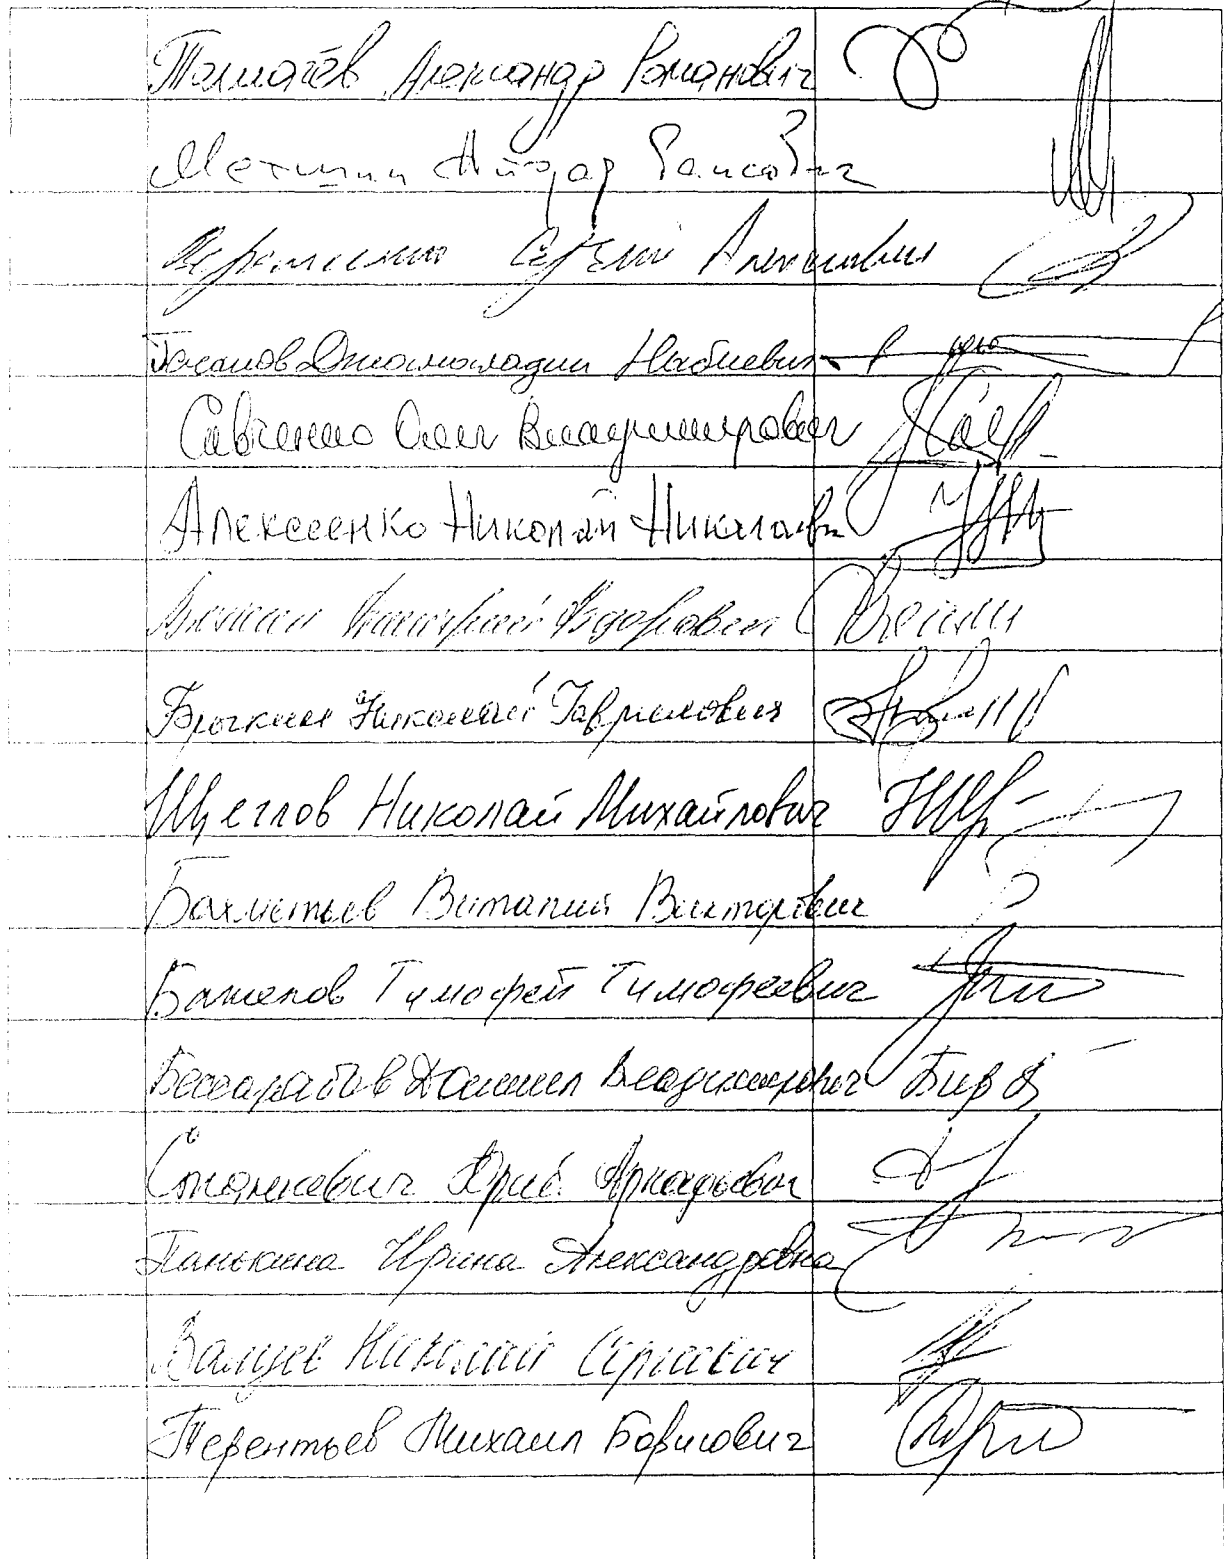 Толмачёв Александр Романович
Метшин Айдар Раисович
Веремеенко Сергей Алексеевич
Гасанов Джамаладин Набиевич
Савченко Олег Владимирович
Алексеенко Николай Николаевич
Вяткин Дмитрий Фёдорович
Брыкин Николай Гаврилович
Щеглов Николай Михайлович
Бахметьев Виталий Викторович
Баженов Тимофей Тимофеевич
Бессарабов Даниил Владимирович
Станкевич Юрий Аркадьевич
Панькина Ирина Александровна
Валуев Николай Сергеевич
Терентьев Михаил Борисович